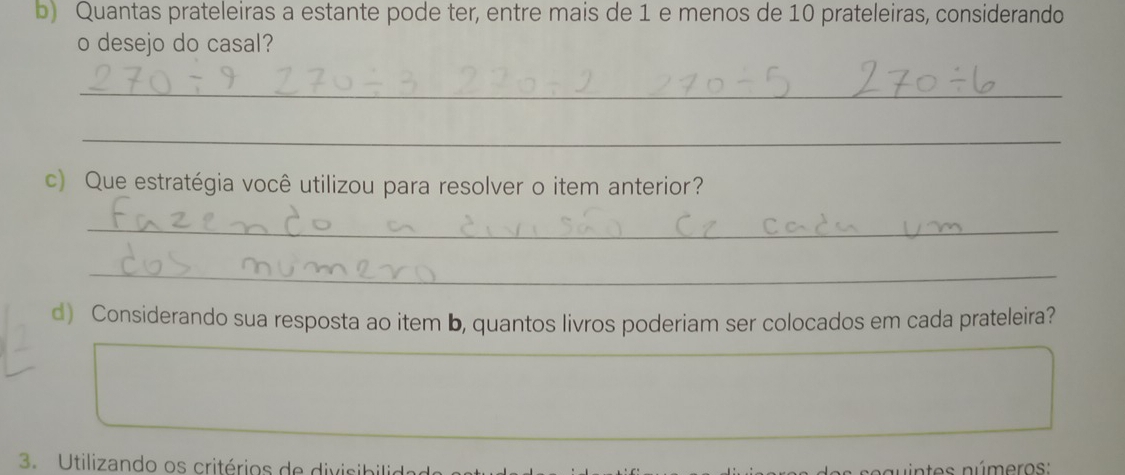 b) Quantas prateleiras a estante pode ter, entre mais de 1 e menos de 10 prateleiras, considerando
o desejo do casal?
270 ÷ 9 270 ÷ 3 270 ÷ 2 270 ÷ 5 270 ÷ 6
c) Que estratégia você utilizou para resolver o item anterior?
fazendo a divisão de cada um
dos numero
d) Considerando sua resposta ao item b, quantos livros poderiam ser colocados em cada prateleira?
3. Utilizando os critérios de divisibilidade estudados, identifique os divisores dos seguintes números: